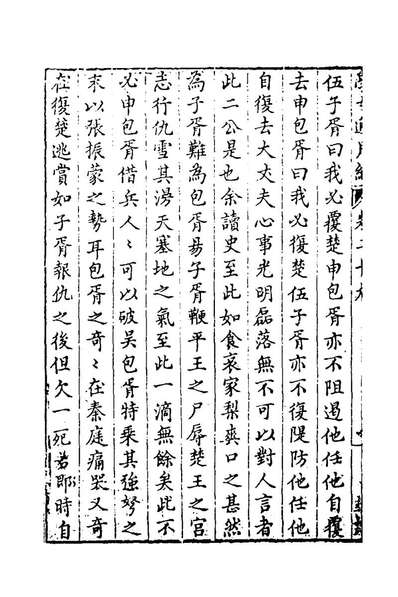 伍子胥曰我必覆楚申包胥亦不阻遏他任他自覆
去申包胥曰我必復楚伍子胥亦不復隄防他任他
自復去大丈夫心事光明磊落無不可以對人言者
此二公是也余讀史至此如食哀家梨爽口之甚然
為子胥難為包胥易子胥鞭平王之尸辱楚王之宮
志行仇雪其漫天塞地之氣至此一滴無餘矣此不
必申包胥借兵人〻可以破吳包胥特乘其強弩之
末以張振蒙之勢耳包胥之奇〻在秦庭痛哭又奇
在復楚逃賞如子胥報仇之後但欠一死若即時自